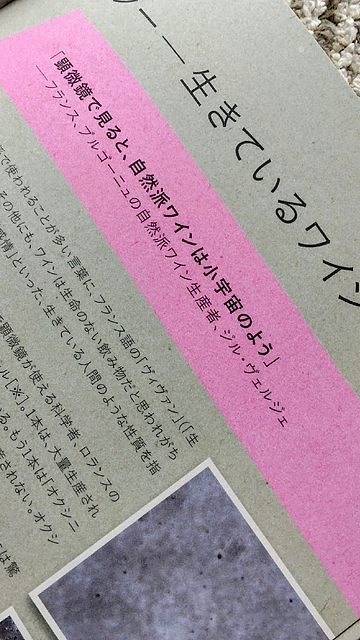 ー──生きているワイン
「顕微鏡で見ると、自然派ワインは小宇宙のよう」
──フランス、ブルゴーニュの自然派ワイン生産者、ジル・ヴェルジェ
で使われることが多い言葉に、フランス語の「ヴィヴァン」(「生
その他にも、ワインは生命のない飲み物だと思われがち
感情」といった、生きている人間のような性質を指
顕微鏡が使える科学者・ロランスの
ル[※]。1本は、大量生産され
る。もう1本は「オクシニ
産されない。オクシ
は驚